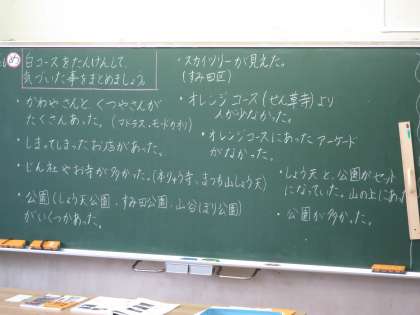 白コースをたんけんして、
気づいた事をまとめましょう。
・かわやさんと、くつやさんが
たくさんあった。(マドラス・モードカオリ)
・しまってしまったお店があった。
・じん社やお寺が多かった。(本りゅう寺、まつち山しょう天)
・公園(しょう天公園、すみ田公園、山谷ぼり公園)
がいくつかあった。
・スカイツリーが見えた。
(すみ田区)
・オレンジコース(せん草寺)より
人が少なかった。
・オレンジコースにあったアーケード
がなかった。
・しょう天と、公園がセット
になっていた。山の上にあ
・公園が多かった。